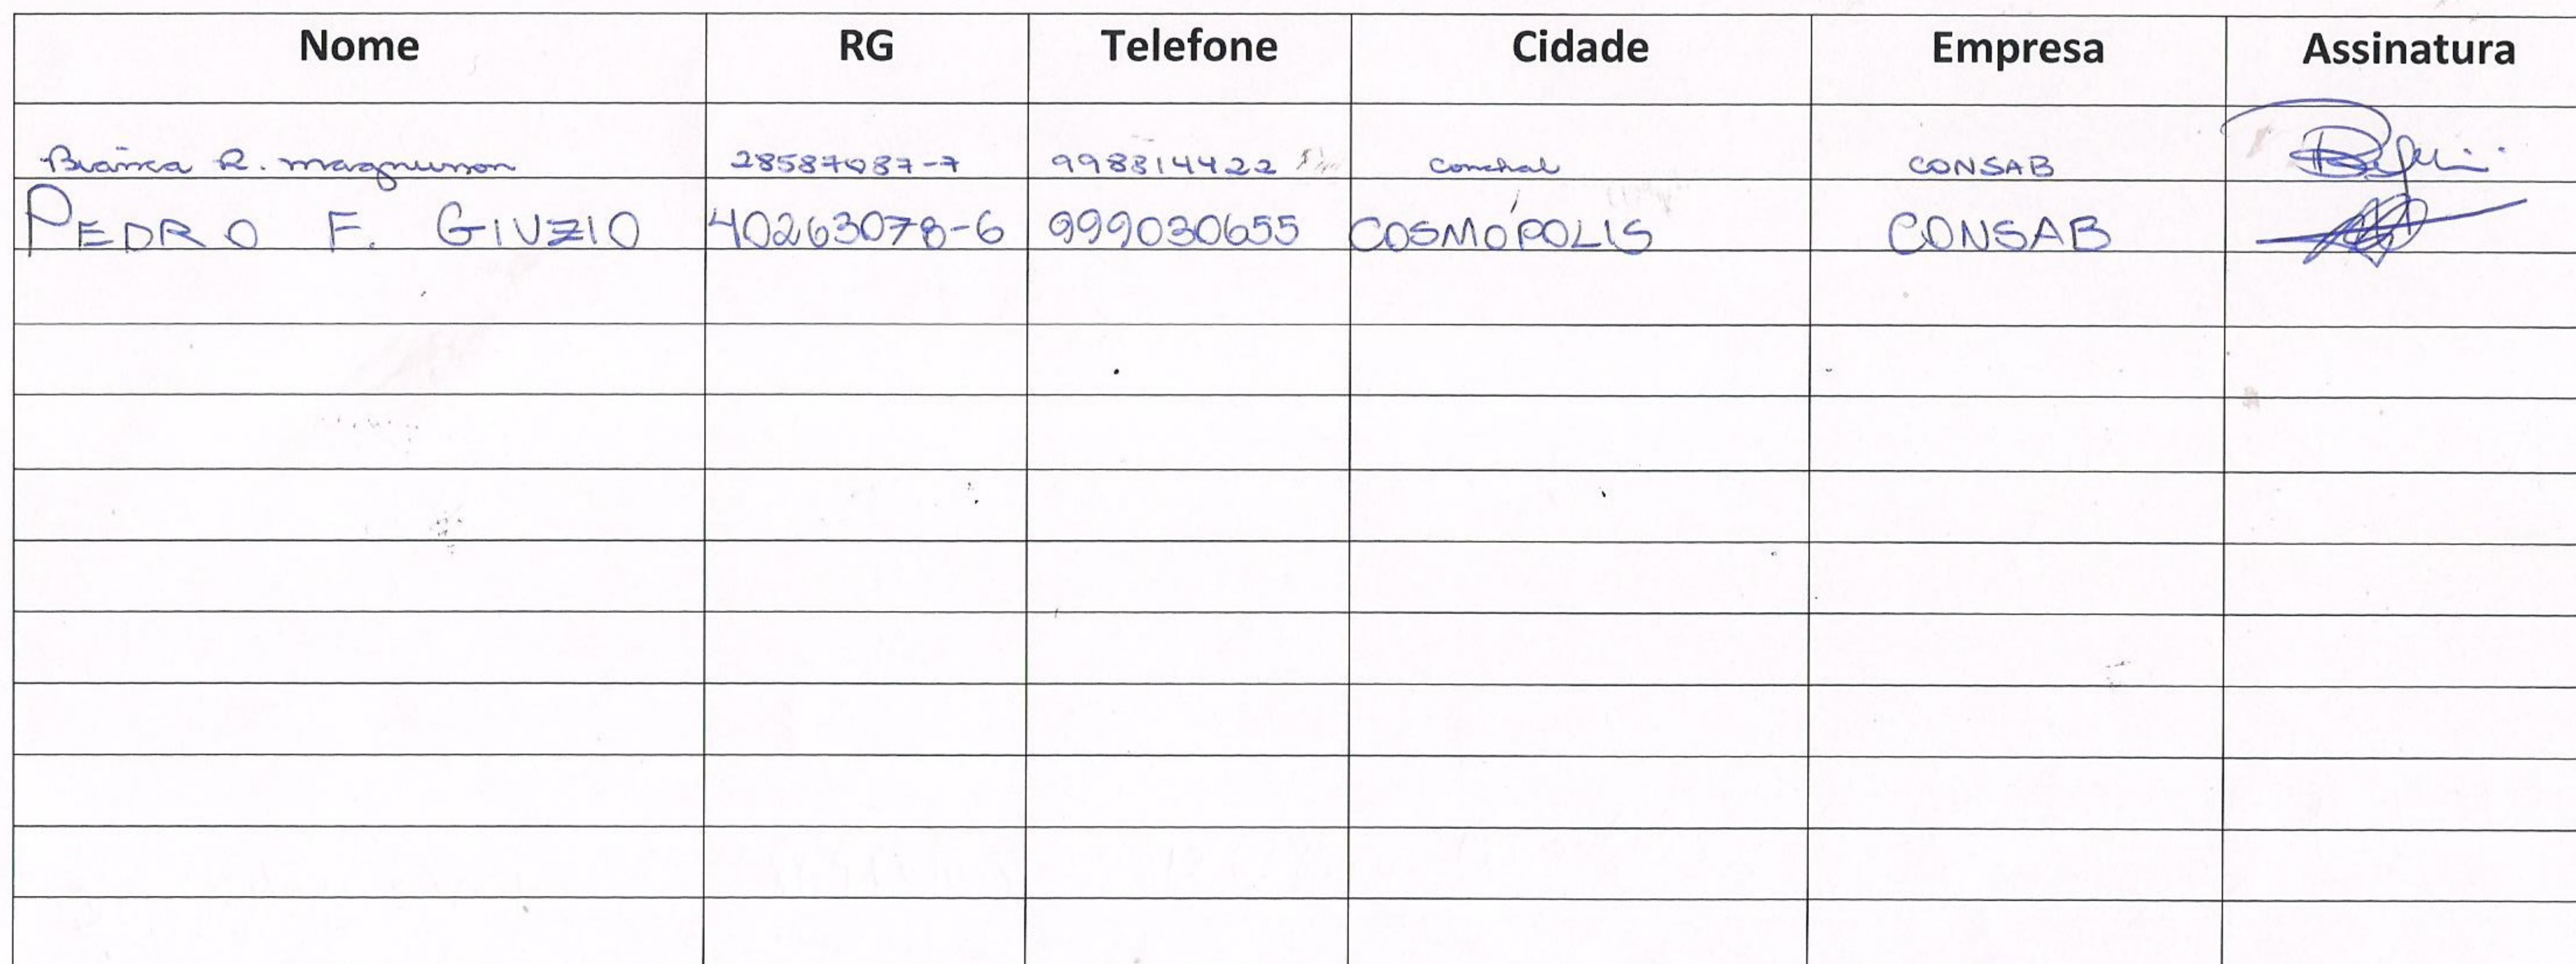 Nome RG Telefone Cidade Empresa Assinatura
Bianca R. 28587087-7 998814422 Conchal CONSAB
PEDRO F. GIUZIO 40263078-6 999030655 COSMÓPOLIS CONSAB